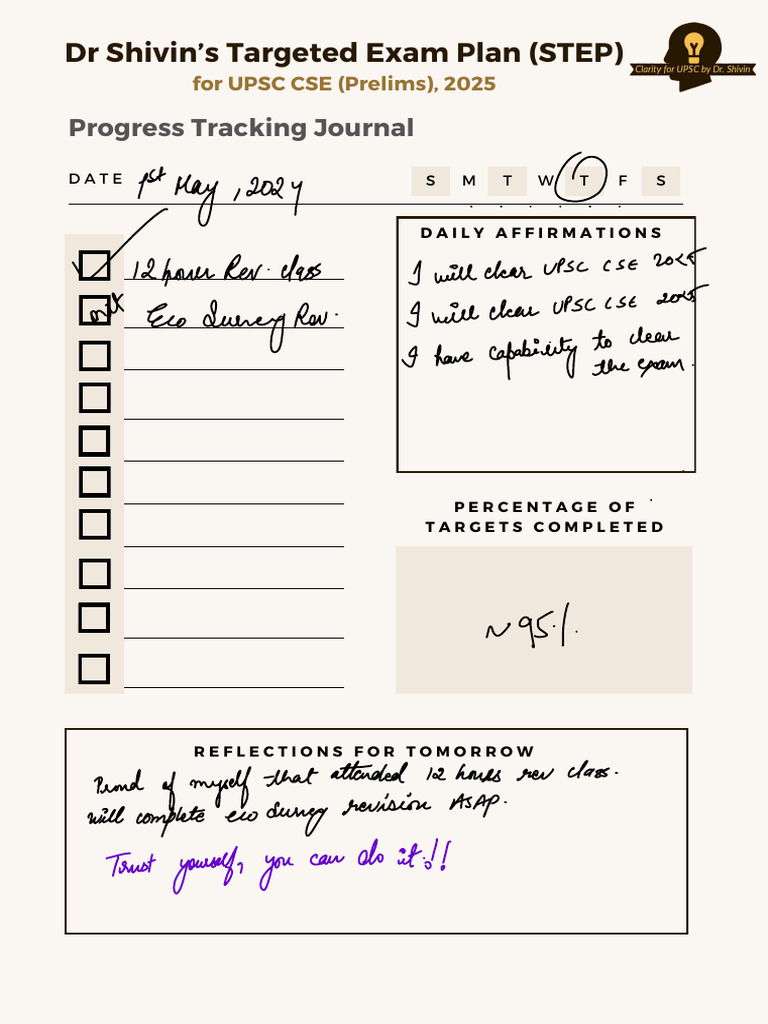 Dr Shivin's Targeted Exam Plan (STEP)
Clarity for UPSC by Dr. Shivin
for UPSC CSE (Prelims), 2025
Progress Tracking Journal
DATE 1st May, 2024
S M T W T F S
12 hour Rev. class
Eco Survey Rev.
DAILY AFFIRMATIONS
I will clear UPSC CSE 2025
I will clear UPSC CSE 2025
I have capability to clear
the exam.
PERCENTAGE OF
TARGETS COMPLETED
~95%
REFLECTIONS FOR TOMORROW
Proud of myself that attended 12 hours rev class.
will complete eco survey revision ASAP.
Trust yourself, you can do it!!